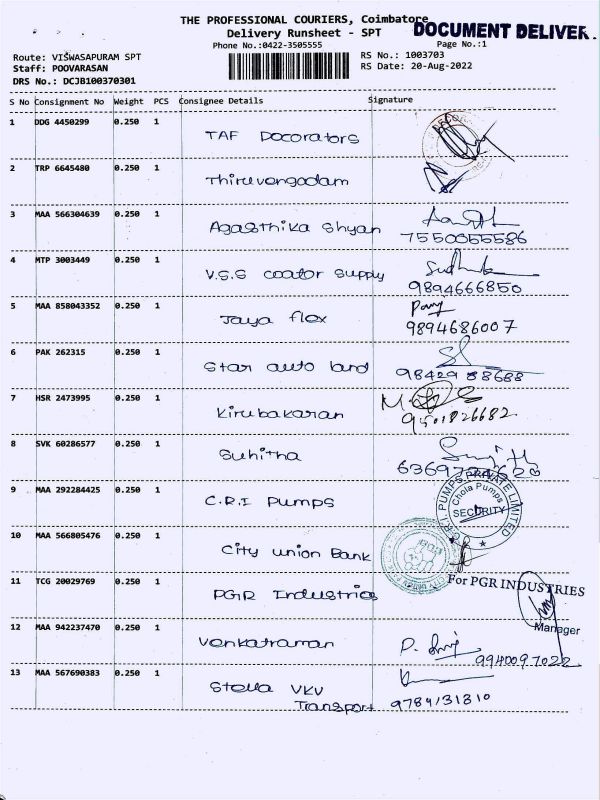 THE PROFESSIONAL COURIERS, Coimbatore
DOCUMENT DELIVER.
Delivery Runsheet - SPT
Phone No.:0422-3505555
Page No.:1
Route: VISWASAPURAM SPT
RS No.: 1003703
Staff: POOVARASAN
RS Date: 20-Aug-2022
DRS No.: DCJB100370301
S No Consignment No Weight PCS Consignee Details Signature
1 DDG 4450299 0.250 1 TAF Docorators
2 TRP 6645480 0.250 1 Thiruvengadam
3 MAA 566304639 0.250 1 Agasthika Shyan
7550055586
4 MTP 3003449 0.250 1 V.S.S coator Supply Sudha
9894666850
5 MAA 858043352 0.250 1 Jaya flex Pary
9894686007
6 PAK 262315 0.250 1 Star auto land
98429 88688
7 HSR 2473995 0.250 1 Kirubakaran
9501826682
8 SVK 60286577 0.250 1 Suhitha
9 MAA 292284425 0.250 1 C.R.I Pumps
C.R.I. PUMPS PRIVATE LIMITED
Chola Pumps
SECURITY
10 MAA 566805476 0.250 1 City union Bank
11 TCG 20029769 0.250 1 PGR Industries
For PGR INDUSTRIES
Manager
12 MAA 942237470 0.250 1 Venkatraman
9940097022
13 MAA 567690383 0.250 1 Stella VKV
Transport 9784131310